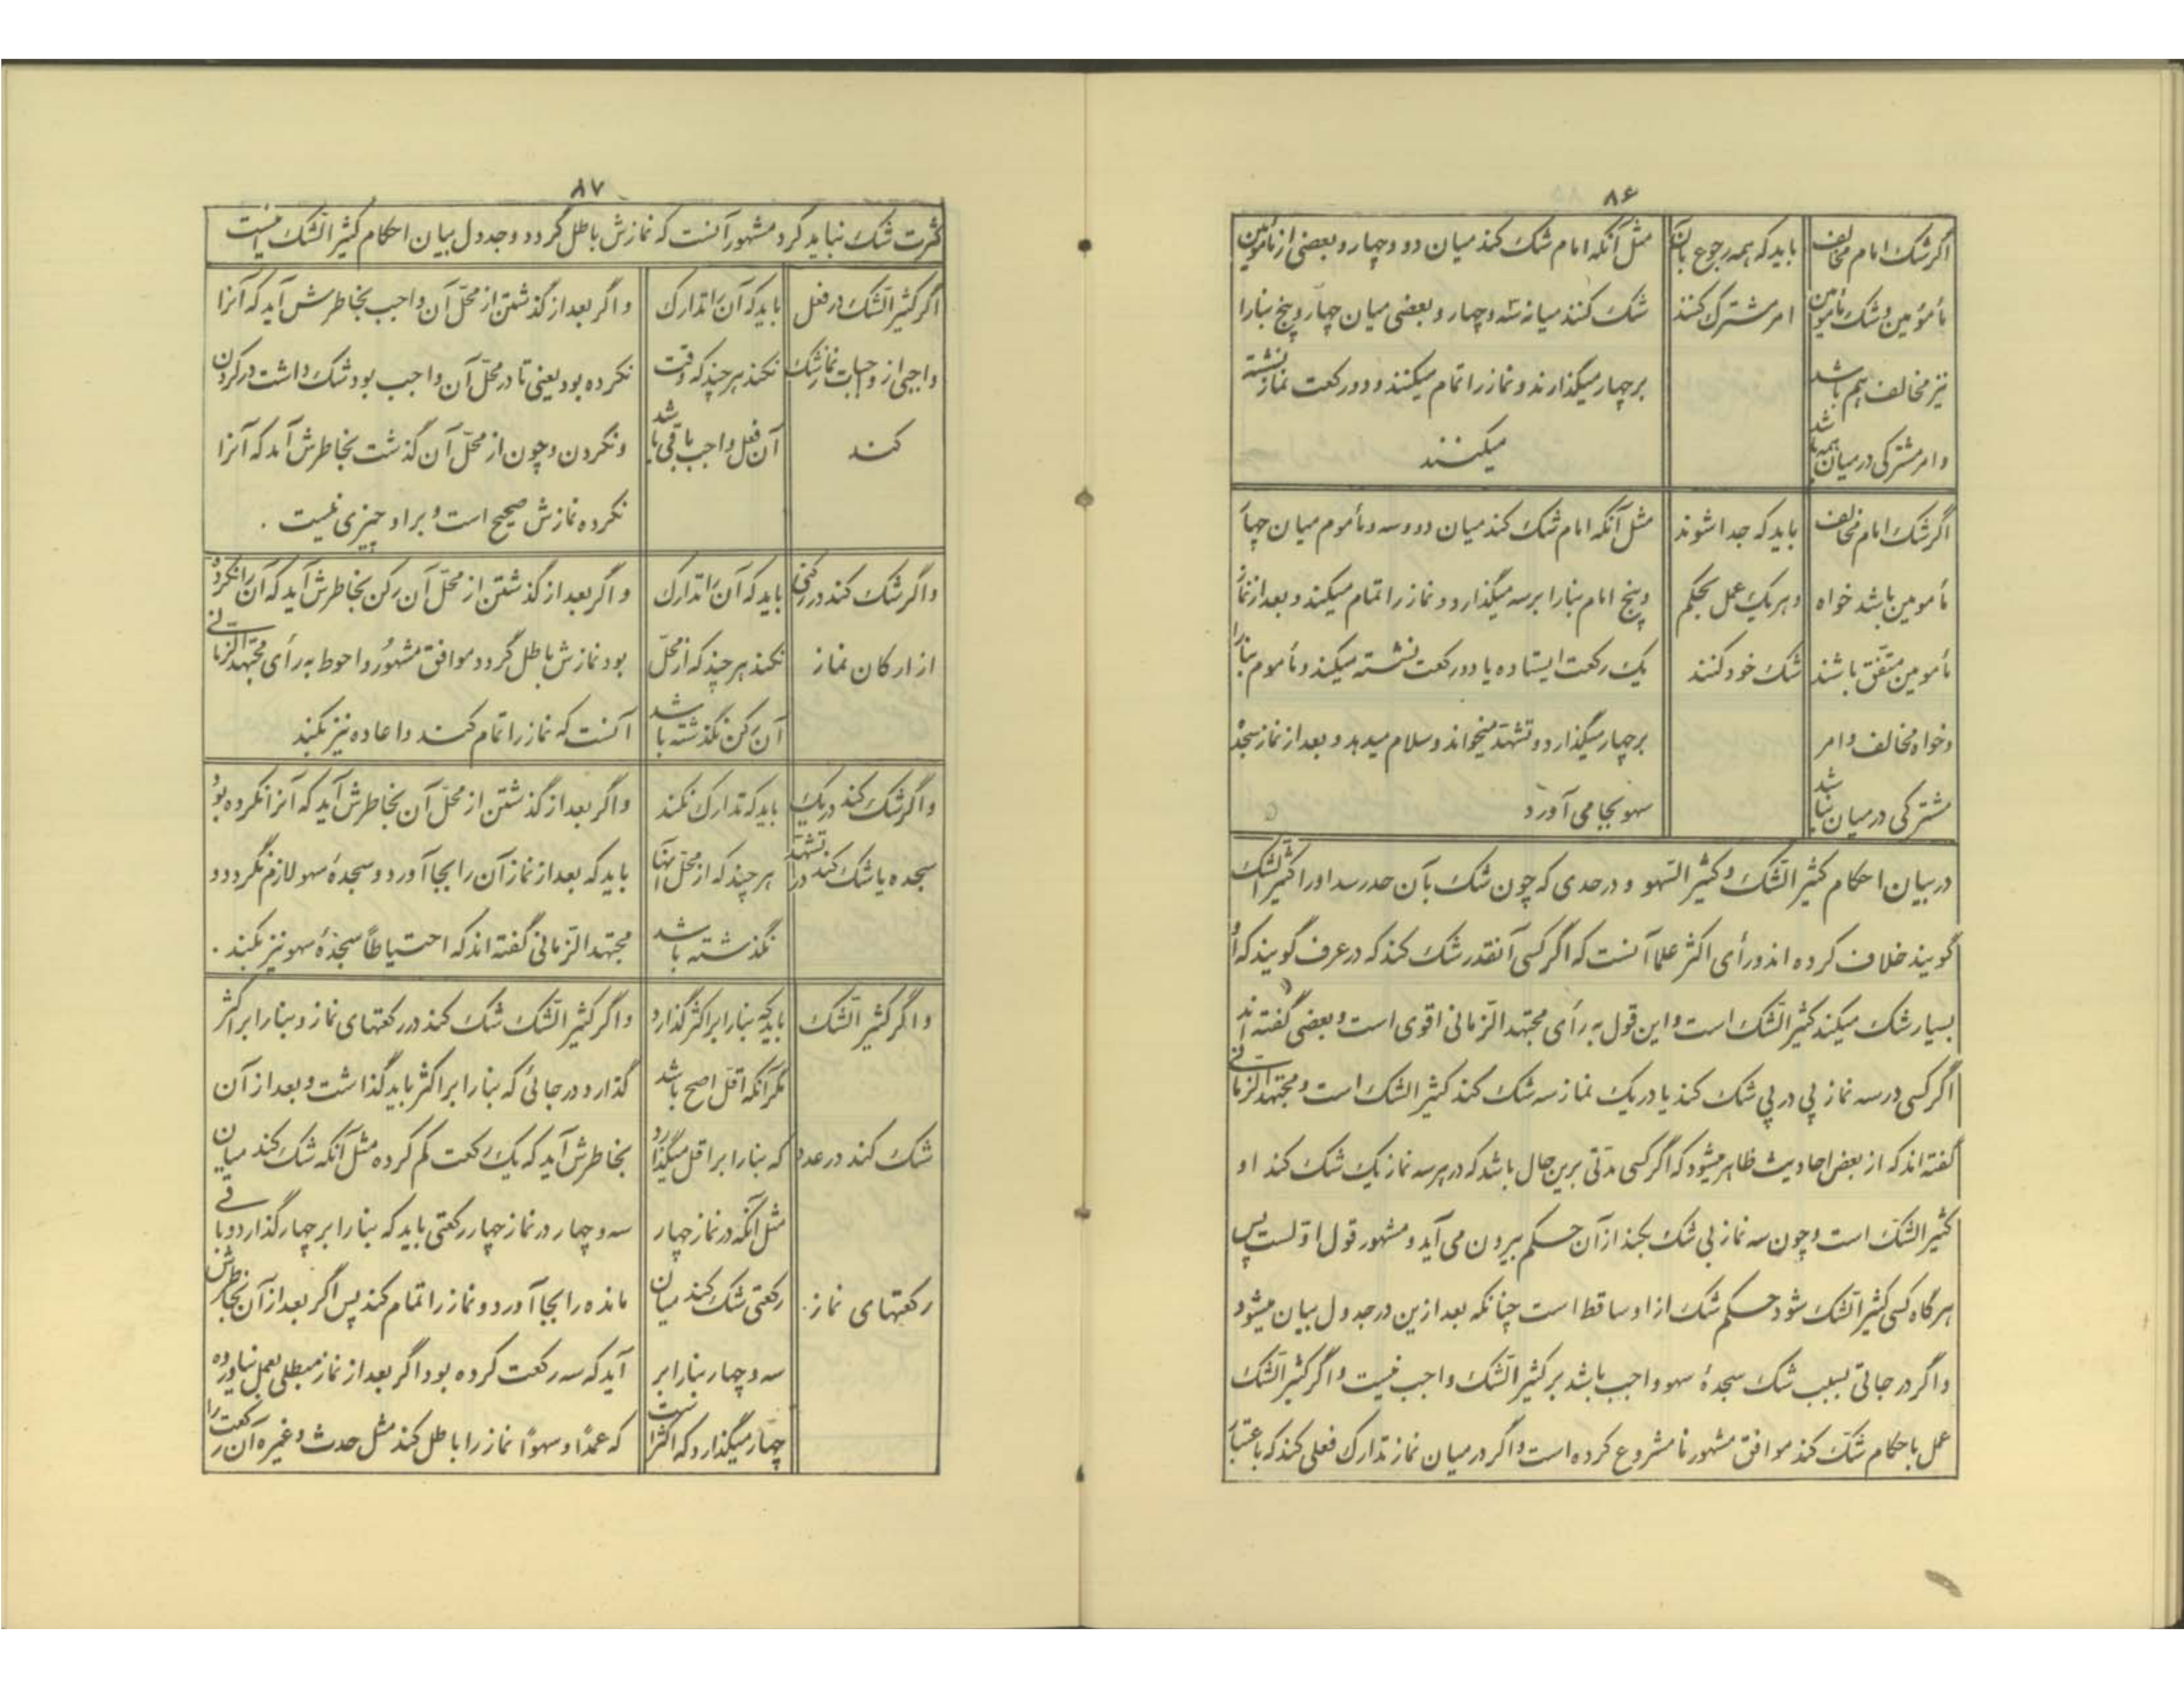 ۸۶
اگر شک امام مخالف
مأمومین و شک مأمومین
نیز مخالف هم باشد
و امر مشترکی در میان همه باشد
باید که همه رجوع بآن
امر مشترک کنند
مثل آنکه امام شک کند میان دو و چهار و بعضی از مأمومین
شک کنند میانه سه و چهار و بعضی میان چهار و پنج بنا را
بر چهار میگذارند و نماز را تمام میکنند و دو رکعت نماز نشسته
میکنند
اگر شک امام مخالف
مأمومین باشد خواه
مأمومین متفق باشند
و خواه مخالف و امر
مشترکی در میان نباشد
باید که جدا شوند
و هر یک عمل بحکم
شک خود کنند
مثل آنکه امام شک کند میان دو و سه و مأموم میان چهار
و پنج امام بنا را بر سه میگذارد و نماز را تمام میکند و بعد از نماز
یک رکعت ایستاده یا دو رکعت نشسته میکند و مأموم بنا را
بر چهار میگذارد و تشهد میخواند و سلام میدهد و بعد از نماز سجده
سهو بجا می آورد
در بیان احکام کثیر الشک و کثیر السهو و در حدی که چون شک بآن حد رسد او را کثیر الشک
گویند خلاف کرده اند و رأی اکثر علما آنست که اگر کسی آنقدر شک کند که در عرف گویند که او
بسیار شک میکند کثیر الشک است و این قول به رأی مجتهد الزمانی اقوی است و بعضی گفته اند
اگر کسی در سه نماز پی در پی شک کند یا در یک نماز سه شک کند کثیر الشک است و مجتهد الزمانی
گفته اند که از بعض احادیث ظاهر میشود که اگر کسی مدتی برین حال باشد که در هر سه نماز یک شک کند او
کثیر الشک است و چون سه نماز بی شک بکند از آن حکم بیرون می آید و مشهور قول اولست پس
هر گاه کسی کثیر الشک شود حکم شک از او ساقط است چنانکه بعد ازین در جدول بیان میشود
و اگر در جائی بسبب شک سجدهٔ سهو واجب باشد بر کثیر الشک واجب نیست و اگر کثیر الشک
عمل باحکام شک کند موافق مشهور نامشروع کرده است و اگر در میان نماز تدارک فعلی کند که باعتبار
۸۷
کثرت شک نباید کرد مشهور آنست که نمازش باطل گردد و جدول بیان احکام کثیر الشک اینست
اگر کثیر الشک در فعل
واجبی از واجبات نماز شک
کند
باید که آن را تدارک
نکند هر چند که وقت
آن فعل واجب باقی باشد
و اگر بعد از گذشتن از محل آن واجب بخاطرش آید که آنرا
نکرده بود یعنی تا در محل آن واجب بود شک داشت در کردن
و نکردن و چون از محل آن گذشت بخاطرش آمد که آنرا
نکرده نمازش صحیح است و بر او چیزی نیست .
و اگر شک کند در رکنی
از ارکان نماز
باید که آن را تدارک
نکند هر چند که از محل
آن رکن نگذشته باشد
و اگر بعد از گذشتن از محل آن رکن بخاطرش آید که آن را نکرده
بود نمازش باطل گردد و موافق مشهور و احوط به رأی مجتهد الزمانی
آنست که نماز را تمام کند و اعاده نیز بکند
و اگر شک کند در یک
سجده یا شک کند در تشهد
باید که تدارک نکند
هر چند که از محل اینها
نگذشته باشد
و اگر بعد از گذشتن از محل آن بخاطرش آید که آنرا نکرده بود
باید که بعد از نماز آن را بجا آورد و سجدهٔ سهو لازم نگردد و
مجتهد الزمانی گفته اند که احتیاطاً سجدهٔ سهو نیز بکند .
و اگر کثیر الشک
شک کند در عدد
رکعتهای نماز .
باید که بنا را بر اکثر گذارد
مگر آنکه اقل اصح باشد
که بنا را بر اقل میگذارد
مثل آنکه در نماز چهار
رکعتی شک کند میان
سه و چهار بنا را بر
چهار میگذارد که اکثر است
و اگر کثیر الشک شک کند در رکعتهای نماز و بنا را بر اکثر
گذارد در جائی که بنا را بر اکثر باید گذاشت و بعد از آن
بخاطرش آید که یک رکعت کم کرده مثل آنکه شک کند میان
سه و چهار در نماز چهار رکعتی باید که بنا را بر چهار گذارد و باقی
مانده را بجا آورد و نماز را تمام کند پس اگر بعد از آن بخاطرش
آید که سه رکعت کرده بود اگر بعد از نماز مبطلی بعمل نیاورده
که عمدًا و سهوًا نماز را باطل کند مثل حدث و غیره آن رکعت را